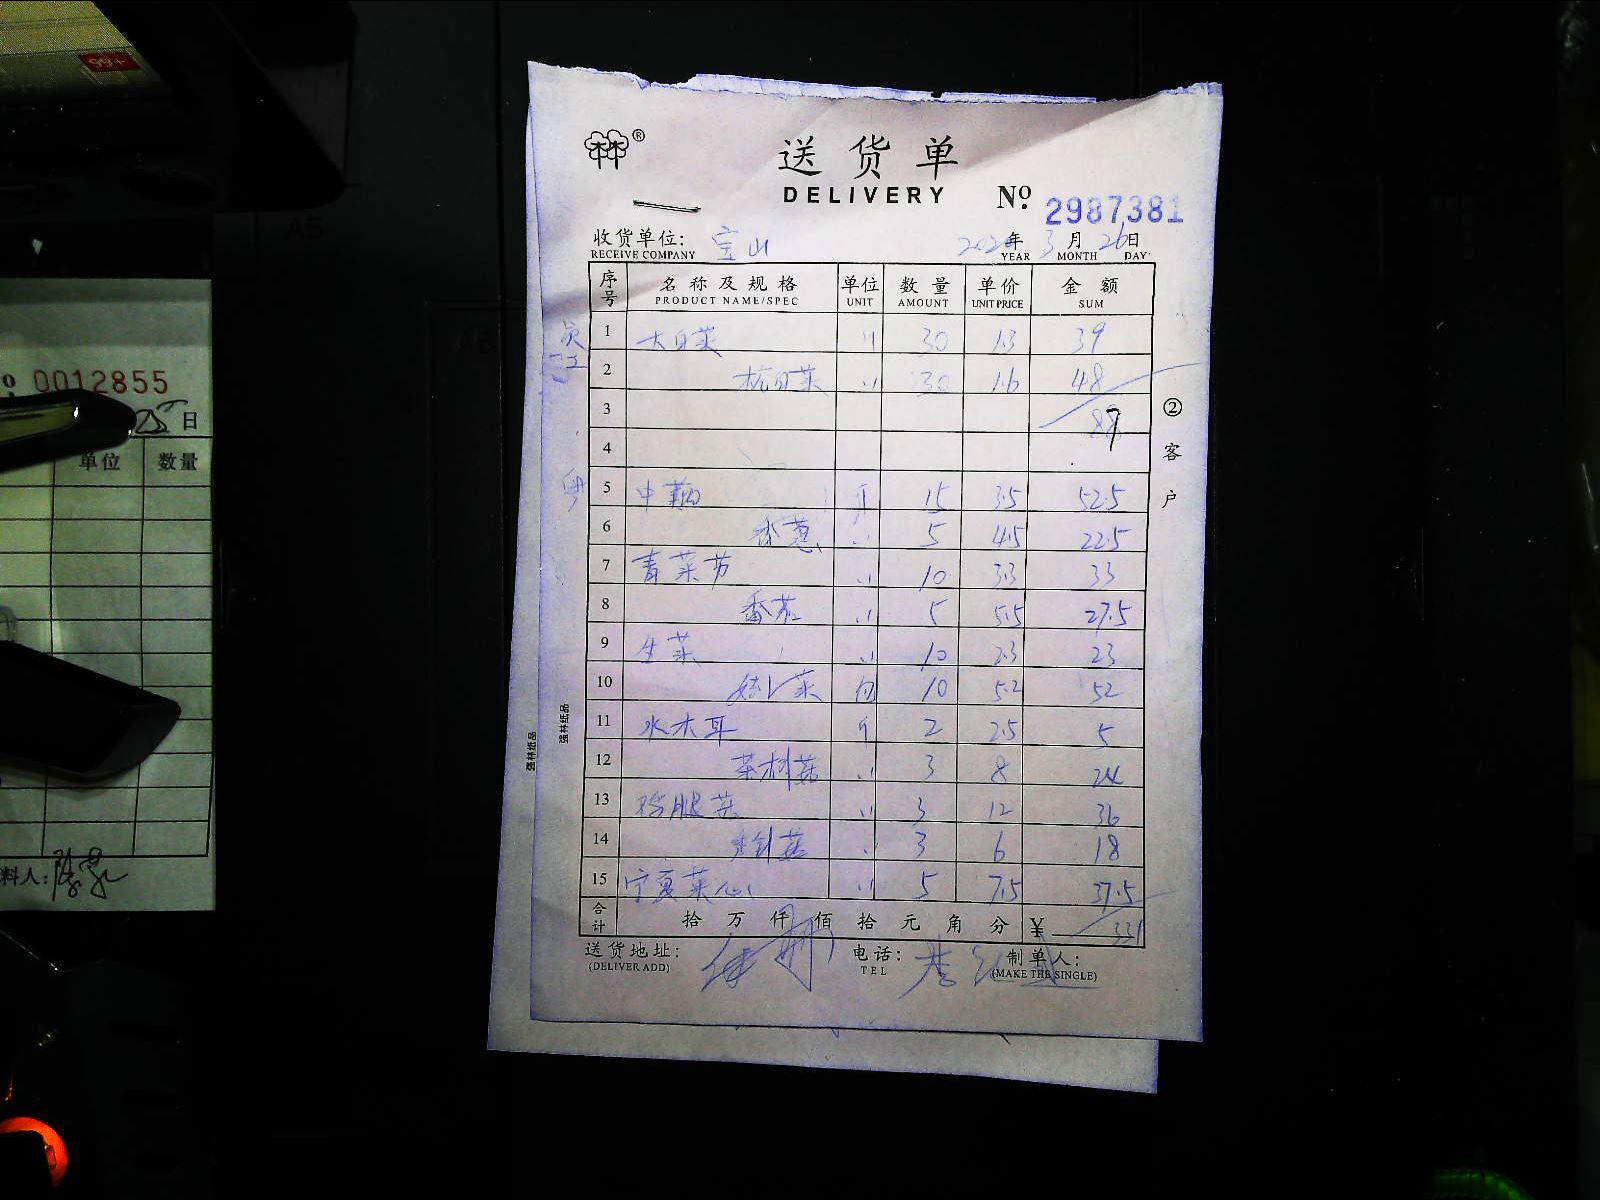 99+
A5
0012855
25日
单位 数量
料人：
® 送货单
DELIVERY № 2987381
收货单位： 宝山 年 3 月 26 日
RECEIVE COMPANY YEAR MONTH DAY
序号 名称及规格 单位 数量 单价 金额
PRODUCT NAME/SPEC UNIT AMOUNT UNIT PRICE SUM
员工 1 大白菜 〃 30 1.3 39
2 杭白菜 〃 30 1.6 48
3 87
4
5 中藕 斤 15 3.5 52.5
6 香葱 〃 5 4.5 22.5
7 青菜苗 〃 10 3.3 33
8 番茄 〃 5 5.5 27.5
9 生菜 〃 10 2.3 23
10 娃娃菜 包 10 5.2 52
11 水木耳 斤 2 2.5 5
12 茶树菇 〃 3 8 24
13 鸡腿菇 〃 3 12 36
14 菇 〃 3 6 18
15 宁夏菜心 〃 5 7.5 37.5
合计 拾 万 仟 佰 拾 元 角 分 ¥ 331
送货地址： 电话： 制单人：
(DELIVER ADD) TEL (MAKE THE SINGLE)
②客户
强林纸品
强林纸品